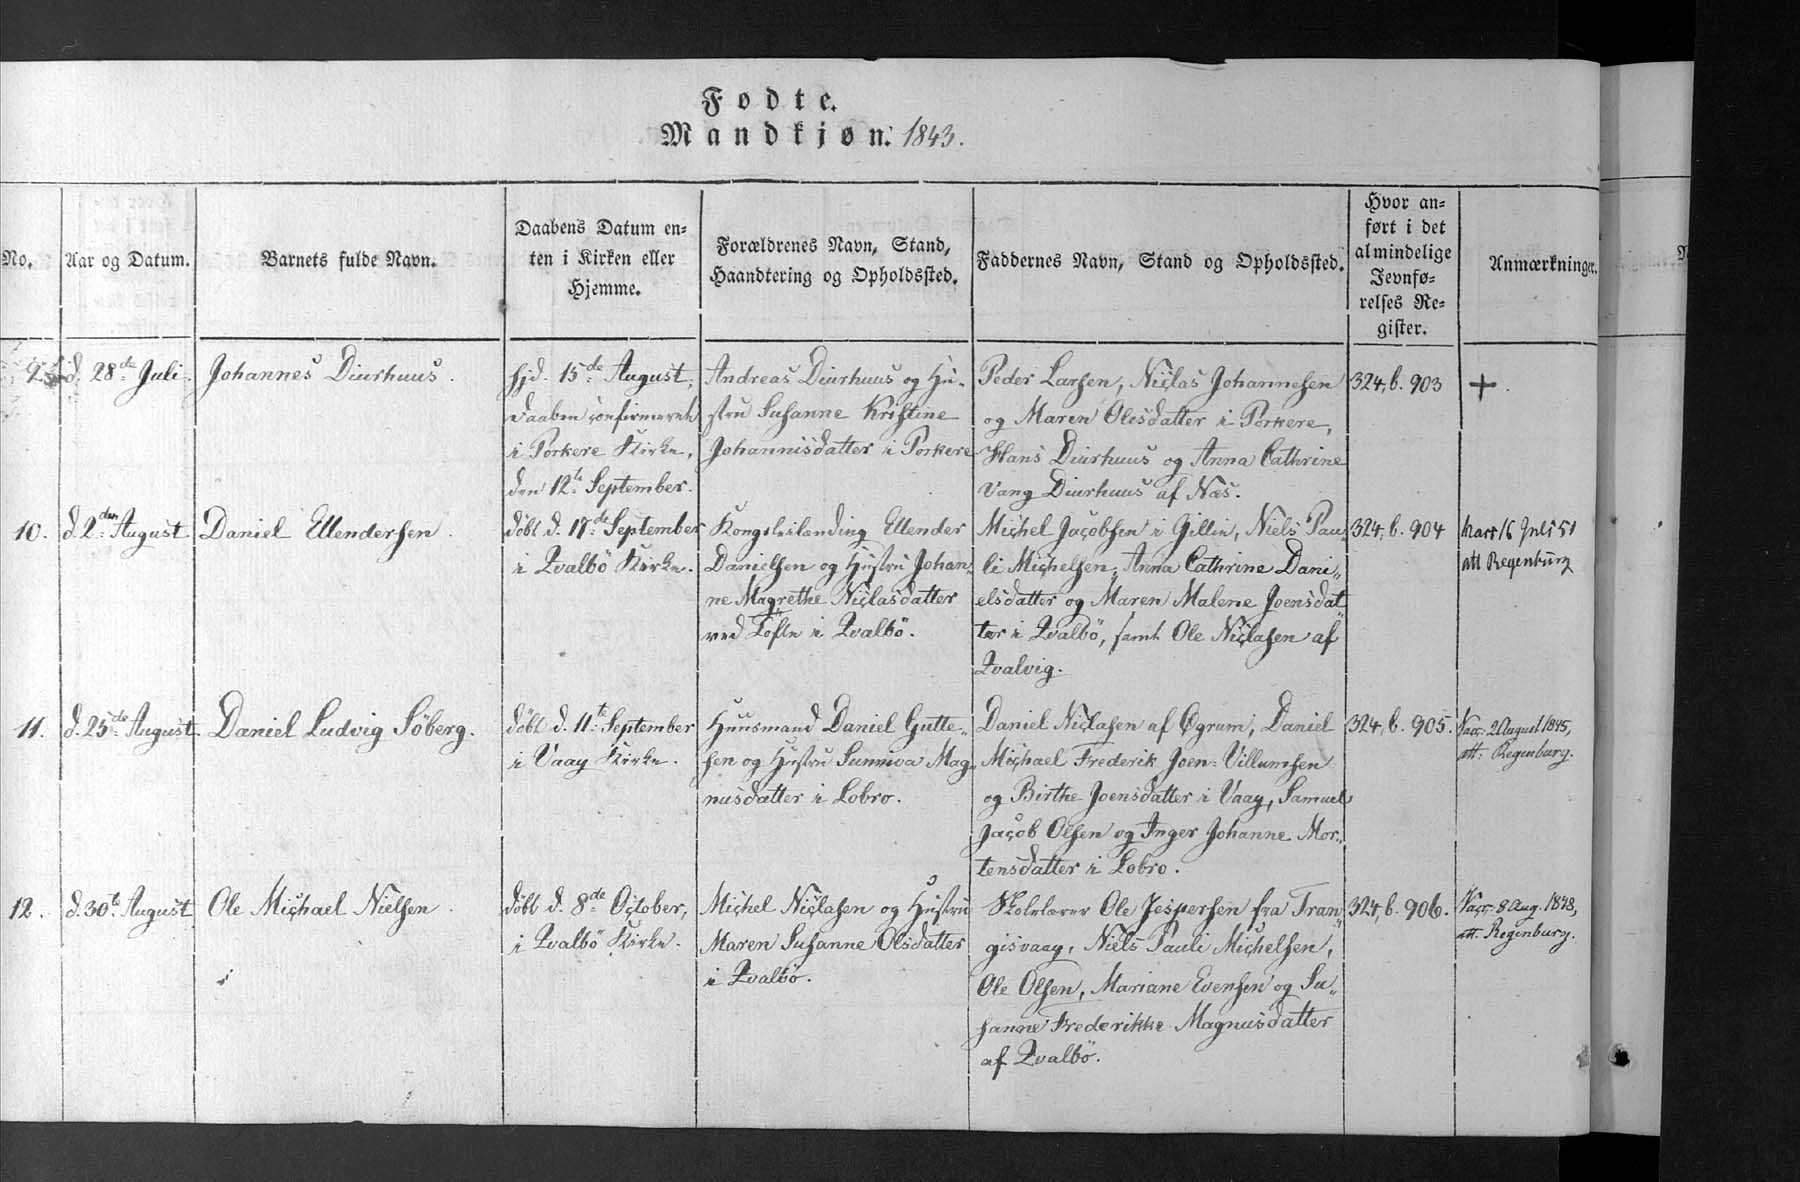 Fødte.
Mandkjøn. 1843.
No.
Aar og Datum.
Barnets fulde Navn.
Daabens Datum en-
ten i Kirken eller
Hjemme.
Forældrenes Navn, Stand,
Haandtering og Opholdssted.
Faddernes Navn, Stand og Opholdssted.
Hvor an-
ført i det
almindelige
Jevnfø-
relses Re-
gister.
Anmærkninger.
9.
d. 28de Juli.
Johannes Diurhuus.
Hjd. 15de August,
Daaben confirmeret
i Porkere Kirke,
den 12te September.
Andreas Diurhuus og Hu-
stru Susanne Kristine
Johannisdatter i Porkere
Peder Larsen, Niclas Johannesen
og Maren Olesdatter i Porkere,
Hans Diurhuus og Anna Cathrine
Vang Diurhuus af Næs.
324, b. 903
+.
10.
d. 2den August
Daniel Ellendersen.
døbt d. 17de September
i Qvalbö Kirke.
Kongsleilending Ellender
Danielsen og Hustru Johan-
ne Magrethe Niclasdatter
ved Tofte i Qvalbö.
Michel Jacobsen i Gillin, Niels Pau
li Michelsen, Anna Cathrine Dani-
elsdatter og Maren Malene Joensdat-
ter i Qvalbö, samt Ole Niclasen af
Qvalvig.
324, b. 904
Vacc 16 Juli 51
att Regenburg
11.
d. 25de August.
Daniel Ludvig Söberg.
döbt d. 11te September
i Vaag Kirke.
Huusmand Daniel Gutte-
sen og Hustru Sunniva Mag-
nusdatter i Lobro.
Daniel Niclasen af Øgrum, Daniel
Michael Frederik Joen-Villumsen
og Birthe Joensdatter i Vaag, Samuel
Jacob Olsen og Inger Johanne Mor-
tensdatter i Lobro.
324, b. 905.
Vacc. 2 August 1845,
att. Regenburg.
12.
d. 30te August
Ole Michael Nielsen
döbt d. 8de October,
i Qvalbö Kirke.
Michel Niclasen og Hustru
Maren Susanne Olsdatter
i Qvalbö.
Skolelærer Ole Jespersen fra Tran-
gisvaag, Niels Pauli Michelsen,
Ole Olsen, Mariane Evensen og Su-
sanne Frederikke Magnusdatter
af Qvalbö.
324, b. 906.
Vacc. 8 Aug. 1848,
att. Regenburg.